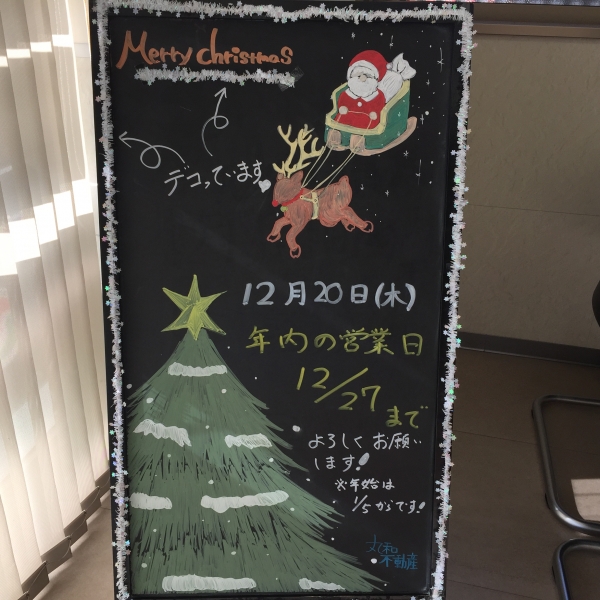 Merry Christmas
デコっています
12月20日(木)
年内の営業日
12/27 まで
よろしく お願い
します!
※年始は
1/5 からです!
丸和
不動産